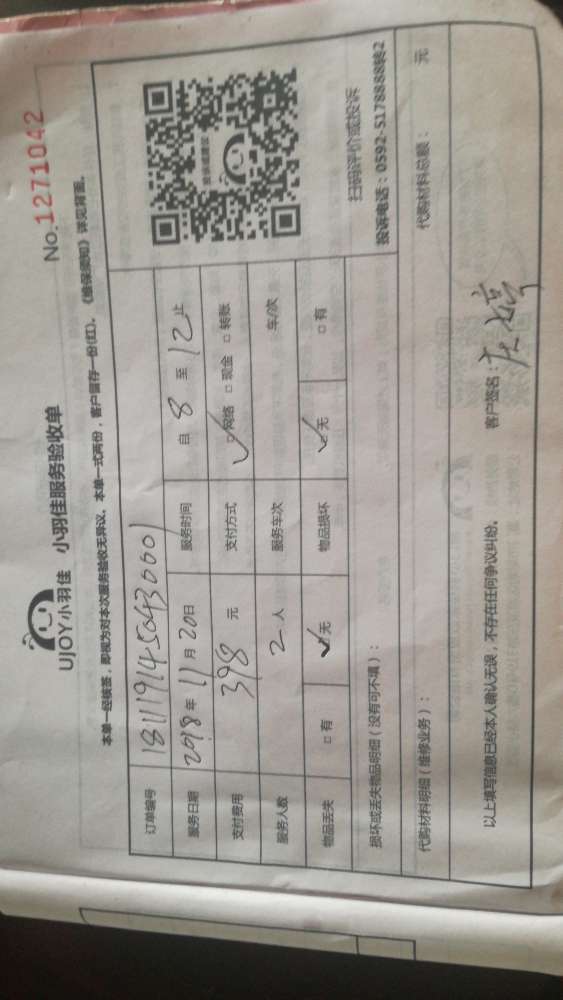 UJOY小羽佳 小羽佳服务验收单
No.1271042
本单一经核签，即视为对本次服务验收无异议。本单一式两份，客户留存一份(红)。《维保须知》详见背面。
订单编号 1811191450430001
服务日期 2018年11月20日 服务时间 自8至12止
支付费用 398元 支付方式 ☑网络 □现金 □转账
服务人数 2人 服务车次 车/次
物品丢失 □有 ☑无 物品损坏 ☑无 □有
损坏或丢失物品明细（没有可不填）：
扫码评价或投诉
投诉电话：0592-5178888转2
代购材料明细（维修业务）： 代购材料总额： 元
以上填写信息已经本人确认无误，不存在任何争议纠纷。 客户签名：